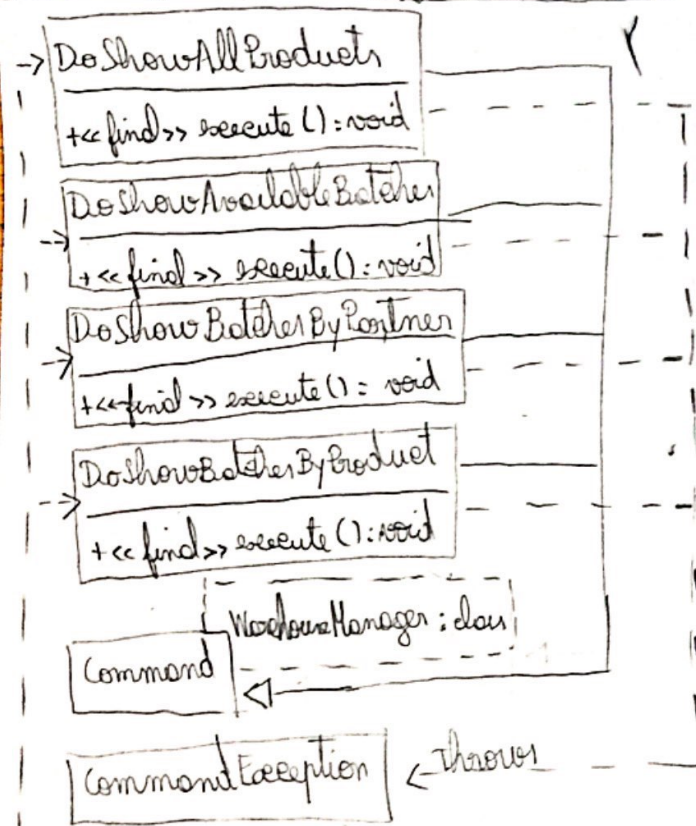 DoShowAllProducts
+<<final>> execute(): void
DoShowAvailableBatches
+<<final>> execute(): void
DoShowBatchesByPartner
+<<final>> execute(): void
DoShowBatchesByProduct
+<<final>> execute(): void
WarehouseManager: class
Command
CommandException
throws